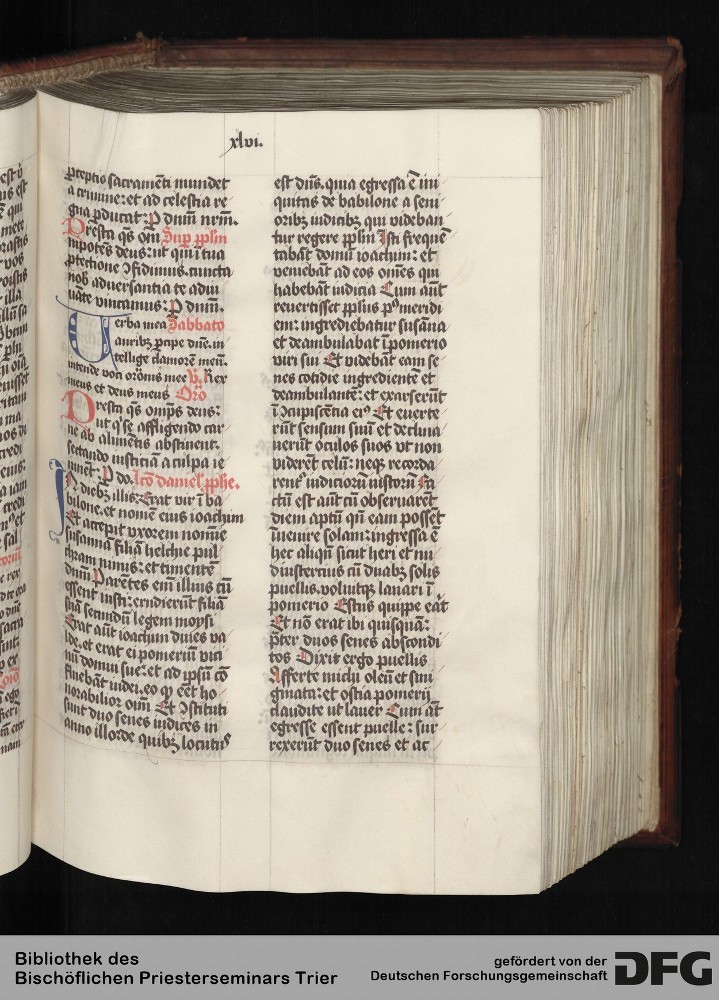 xlvi.
p̱ceptis sacramēti mundet
a crimine: et ad celestia re
gna p̱ducat: P dn̄m nr̄m.
Presta qs̄ om̄ Sup̱ pp̱lm
nipotēs deus: ut qui ī tua
p̱tectione ꝯfidimus. cuncta
nob̄ aduersantia te adiu
uāte vincamus: P dn̄m.
Uerba mea Sabbato
auribꝫ p̱cipe dn̄e. in
tellige clamorē meū.
intende voci orōnis mee V̄. Rex
meus et deus meus Orō
Presta qs̄ om̄ps deus:
ut q̄ se affligendo car
ne ab alimētis abstinent.
sectando iusticiā a culpa ie
iunēt: P do. Lcō daniel. pp̱he.
In diebꝫ illis: Erat vir ī ba
bilone. et nomē eius ioachim
Et accepit vxorem nomīe
susannā filiā helchie pul
chram nimis: et timentē
dn̄m Parētes em̄ illius cū
essent iusti: erudierūt filiā
suā secundū legem moysi
Erat aūt ioachim diues va
lde. et erat ei pomeriū vici
nū domui sue: et ad ip̄m cō
fluebāt iudei. eo q̱ eēt ho
norabilior oīm Et ꝯstituti
sunt duo senes iudices in
anno illo: de quibꝫ locutꝰ
est dn̄s. quia egressa ē ini
quitas de babilone a seni
oribꝫ iudicibꝫ qui videban
tur regere pp̱lm Isti frequē
tabāt domū ioachim: et
veniebāt ad eos om̄es qui
habebāt iudicia Cum aūt
reuertisset pp̱lus pꝰ meridi
em: ingrediebatur susāna
et deambulabat ī pomerio
viri sui Et videbāt eam se
nes cotidie ingredientē et
deambulantē: et exarserūt
ī ꝯcupiscētia eiꝰ Et euerte
rūt sensum suū et declina
uerūt oculos suos vt non
viderēt celū: neqꝫ recorda
rentꝰ iudiciorū iustorū Fa
ctū est aūt cū obseruarēt
diem aptū qn̄ eam possēt
īuenire solam: ingressa ē
hec aliqn̄ sicut heri et nu
diustercius cū duabꝫ solis
puellis. voluitqꝫ lauari ī
pomerio Estus quippe eāt
Et nō erat ibi quisquā:
p̄ter duos senes abscondi
tos Dixit ergo puellis
Afferte michi oleū et smi
gmata: et ostia pomerij
claudite ut lauer Cum aūt
egresse essent puelle: sur
rexerūt duo senes et ac
Bibliothek des
Bischöflichen Priesterseminars Trier
gefördert von der
Deutschen Forschungsgemeinschaft
DFG